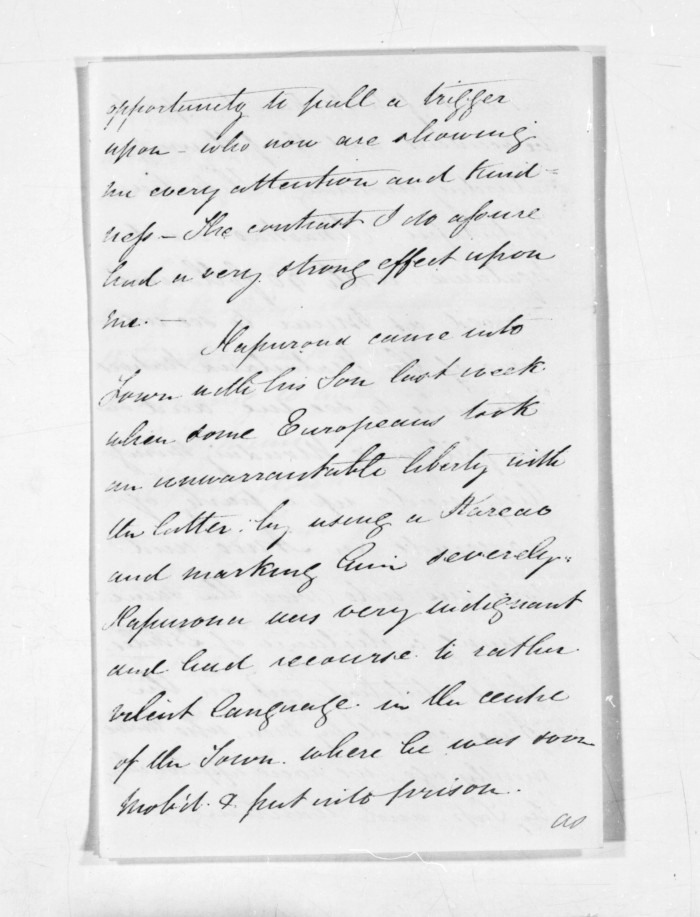 opportunity to pull a trigger
upon - who now are showing
me every attention and kind-
ness - The contrast I do assure
had a very strong effect upon
me. -
Hapurona came into
Town with his Son last week.
when some Europeans took
an unwarrantable liberty with
the latter. by using a Kareao
and marking him severely.
Hapurona was very indignant
and had recourse to rather
violent language. in the centre
of the Town. where he was soon
mob'd. & put into prison.
as